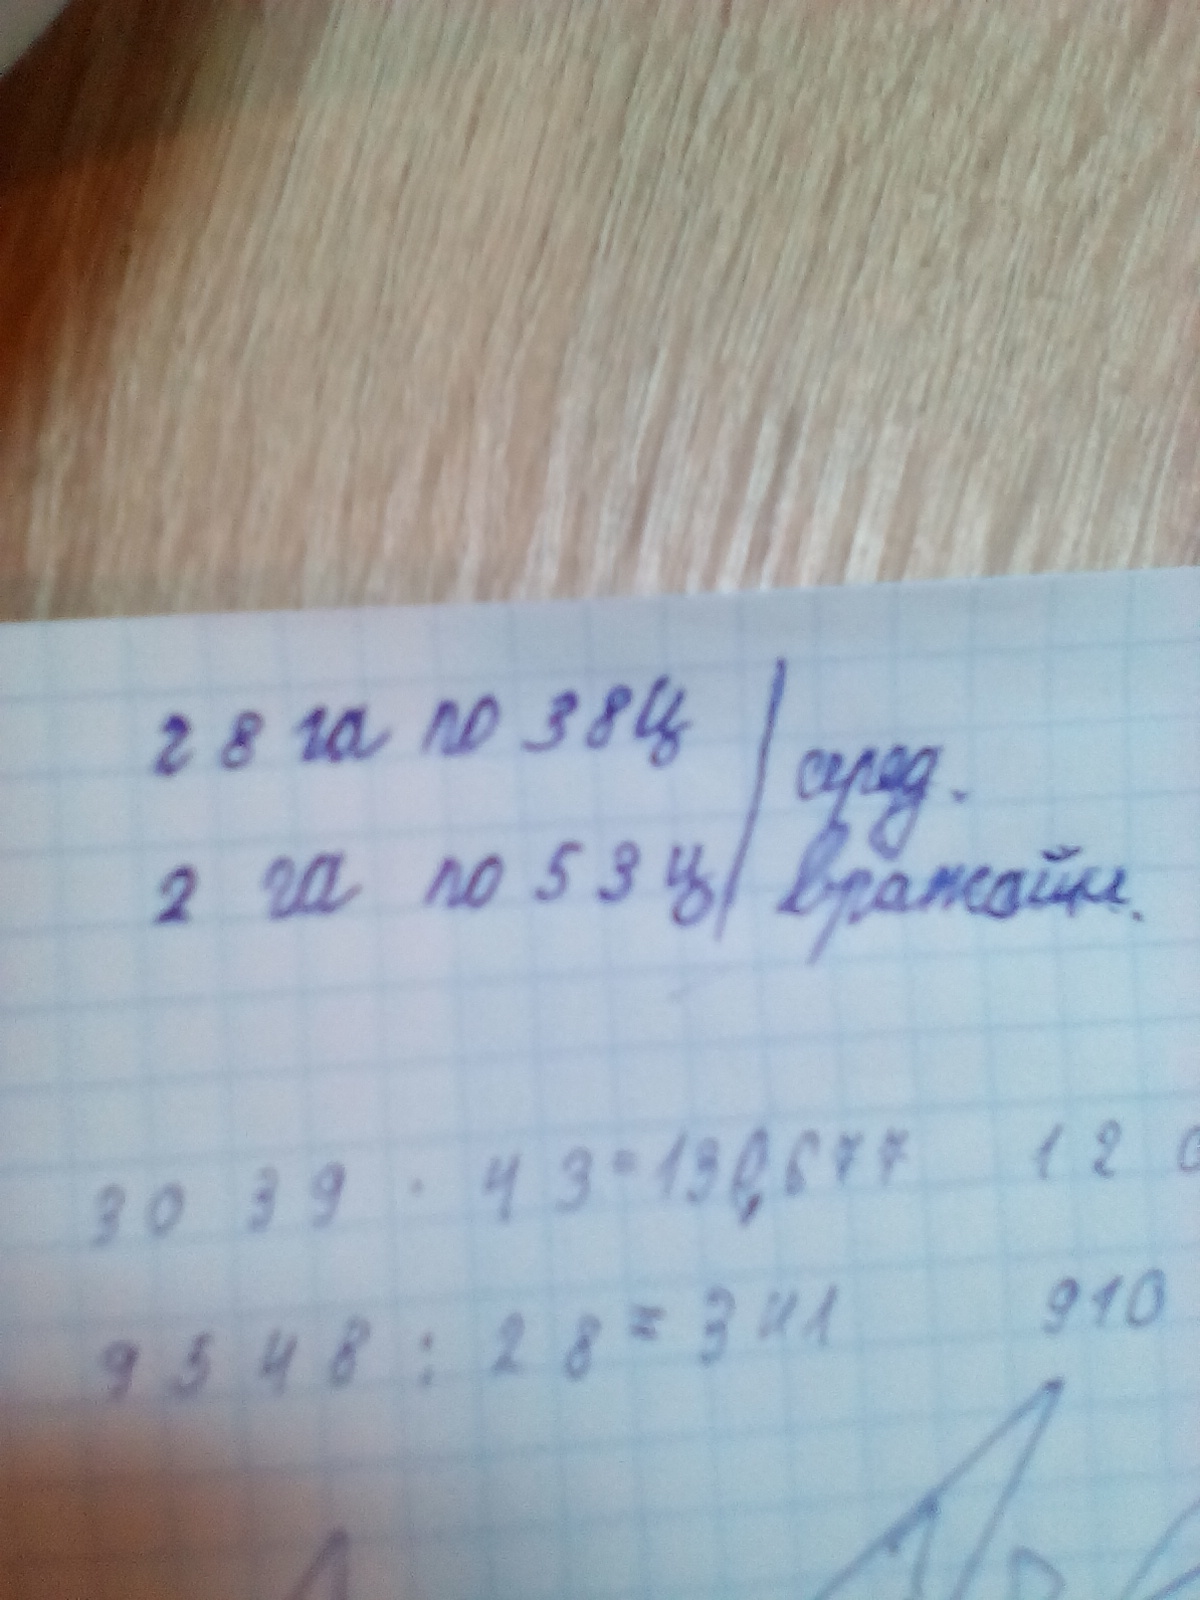 28 га по 38ц
серед.
2 га по 53ц
вражайн.
3039 · 43=130,677 12
9548 : 28=341 910